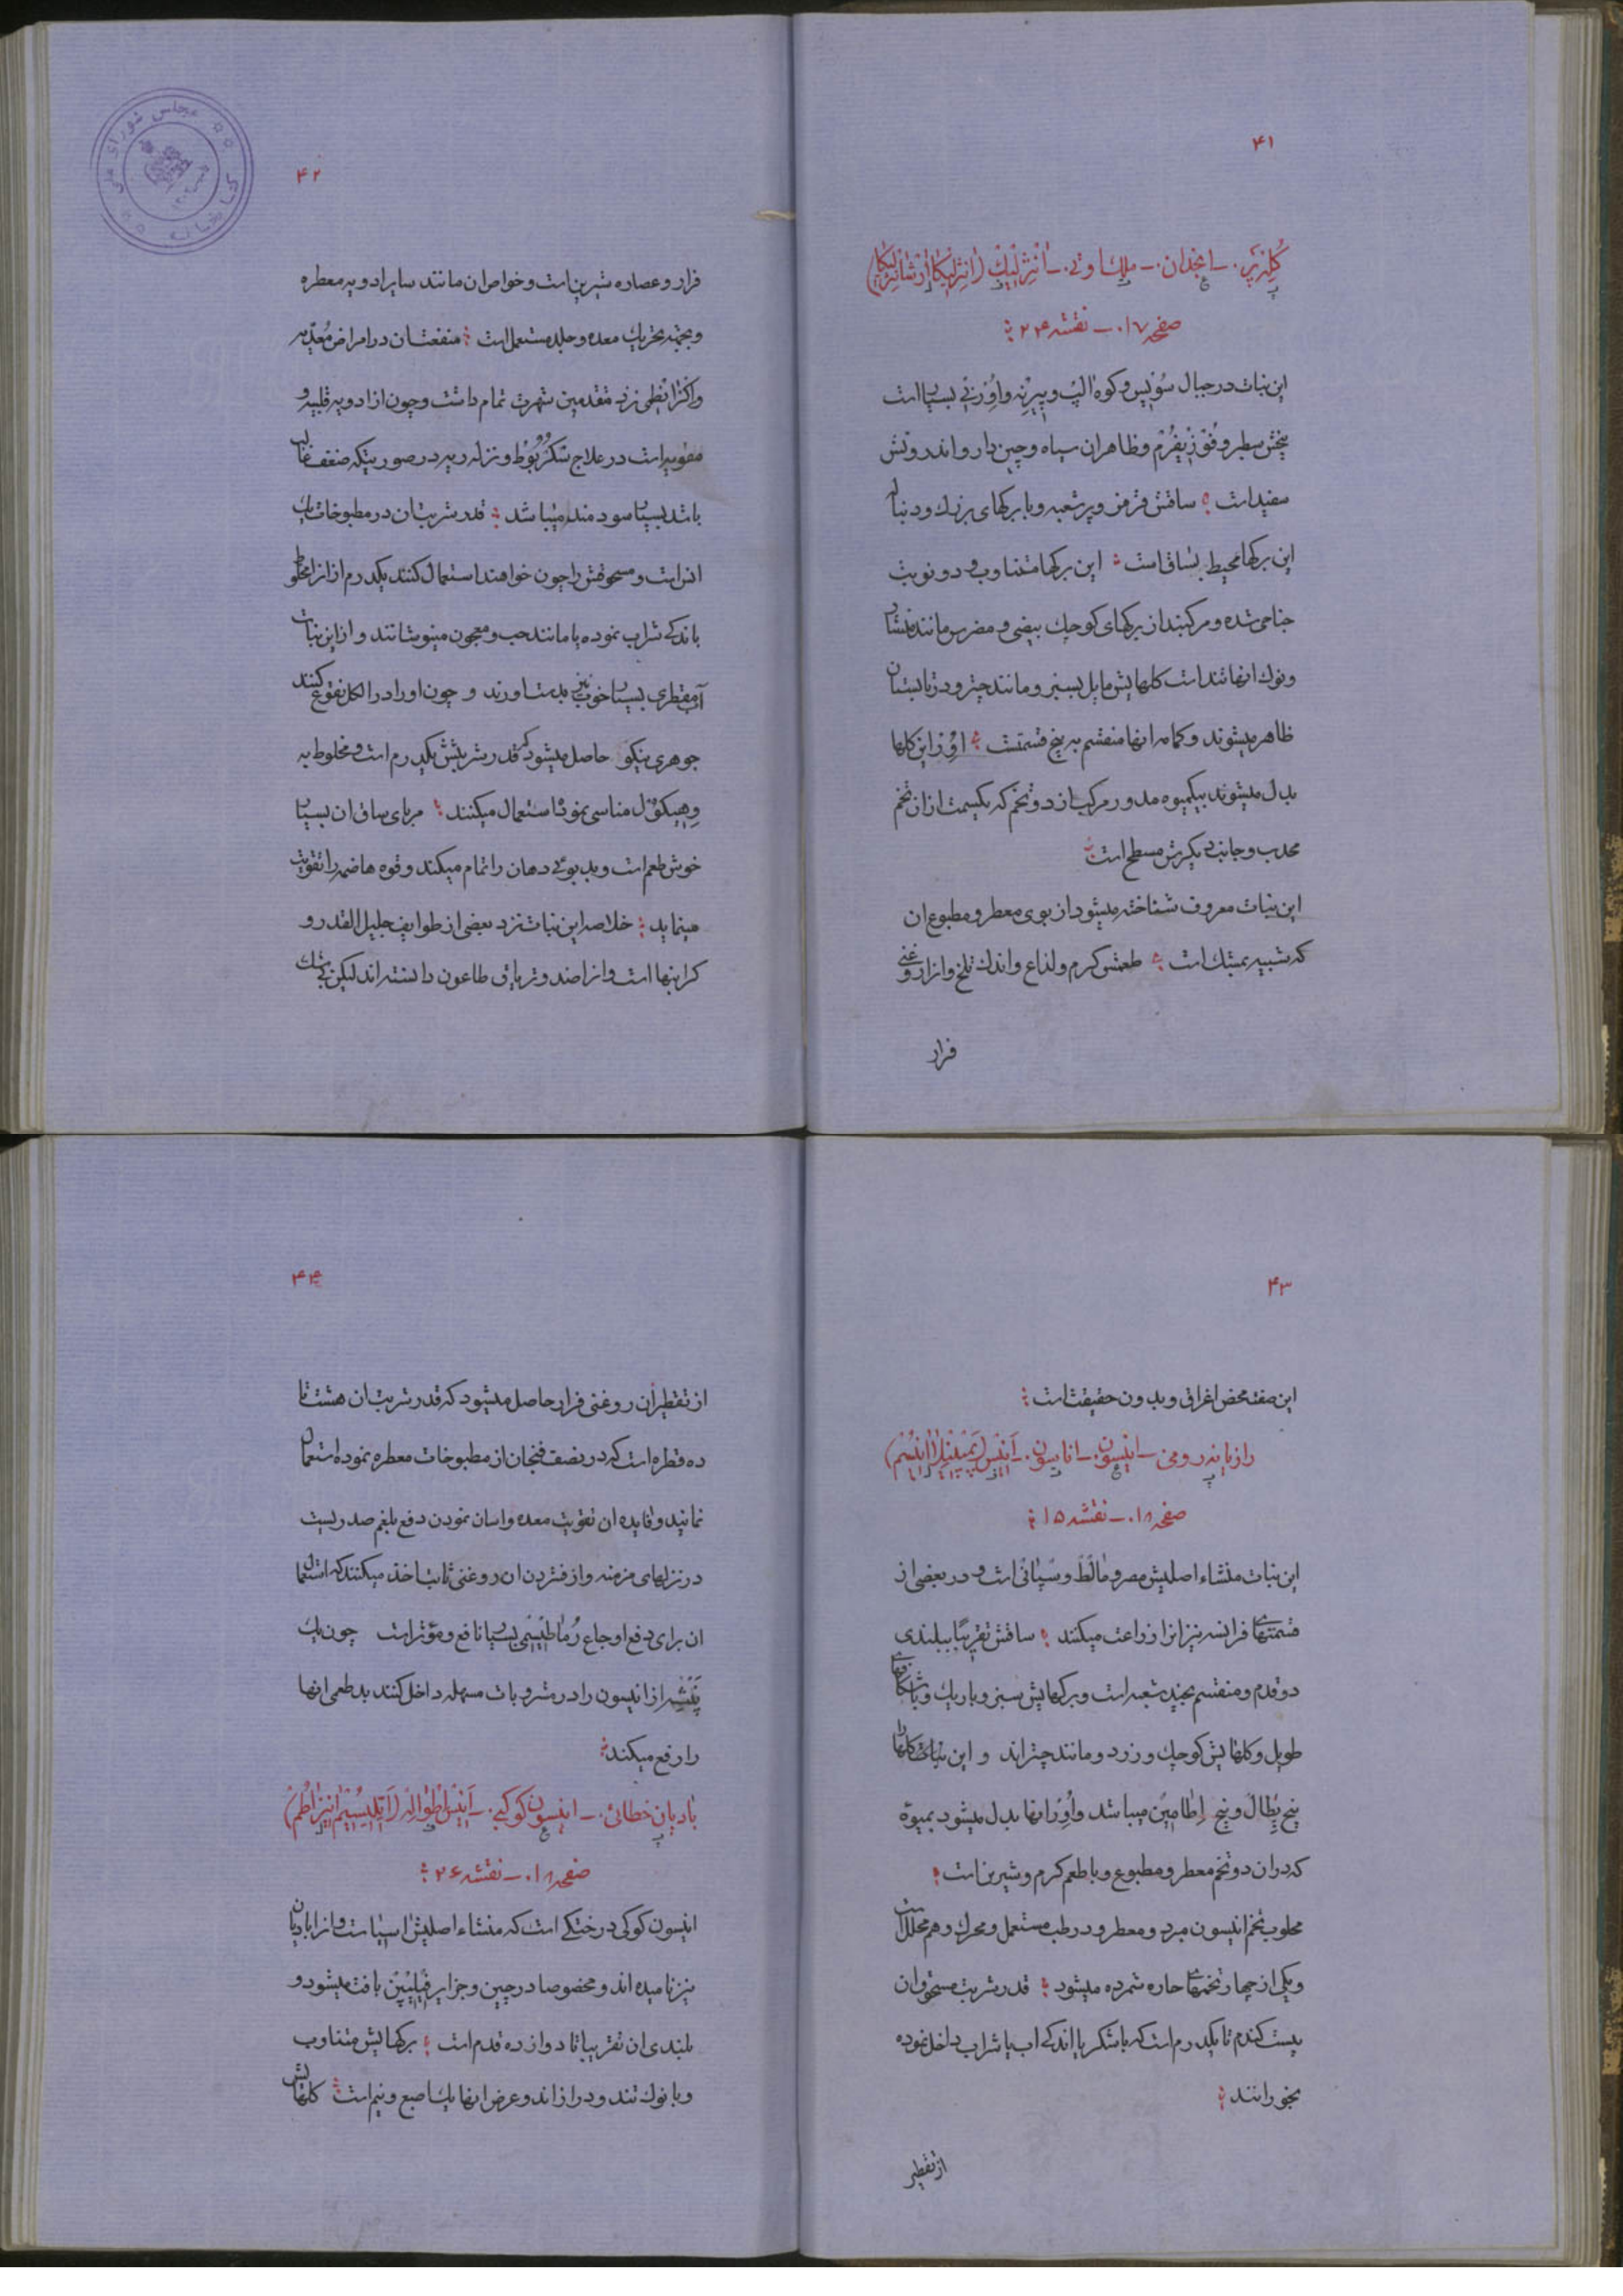 ۴۱
گلپر. - انجذان. - ملك اوتی. - آنژلیك (انژلیکا ارشانژلیکا)
صفحه ۱۷. - نقشه ۲۴
این نبات در جبال سوئیس و کوه الپ و پیرنه و اوورنی بسیار است
بیخش سطبر و فوزیفرم و ظاهر ان سیاه و چین دار و اندرونش
سفید است ساقش قرمز و پر شعبه و با برکهای بزرك و دنباله
این برکها محیط بساق است این برکها متناوب و دو نوبت
جناحی شده و مرکبند از برکهای کوچك بیضی و مضرس مانند منشار
و نوك انها تند است کلهایش مایل بسبز و مانند چتر و در تابستان
ظاهر میشوند و کمامه انها منقسم به پنج قسمتست اوور این کلها
بدل میشوند بیکمیوه مدور مرکب از دو تخم که یکسمت از ان تخم
محدب و جانب دیکرش مسطح است
این نبات معروف شناخته میشود از بوی معطر و مطبوع ان
که شبیه بمشك است طعمش کرم و لذاع و اندك تلخ و از ان روغنی
فرار
۴۲
فرار و عصاره شیرین است و خواص ان مانند سایر ادویه معطره
و بجهة تحریك معده و جلد مستعمل است منفعت ان در امراض معدیه
و اکثرا نظی نزد متقدمین شهرت تمام داشت و چون از ادویه قلبیه و
مقویه است در علاج سکربوط و نزله ریه در صورتیکه ضعف غالب
باشد بسیار سودمند میباشد قدر شربت ان در مطبوخات یك
انس است و مسحوقش را چون خواهند استعمال کنند یکدرم از انرا مخلوط
باندکی شراب نموده یا مانند حب و معجون مینوشانند و از این نبات
آب مقطری بسیار خوب نیز بدست اورند و چون اورا در الکل نقوع کنند
جوهری نیکو حاصل میشود که قدر شربتش یکدرم است و مخلوط به
وهیکول مناسبی نموده استعمال میکنند مربای ساق ان بسیار
خوش طعم است و بدبوئی دهان را تمام میکند و قوه هاضمه را تقویت
مینماید خلاصه این نبات نزد بعضی از طوایف جلیل القدر و
کرانبها است و انرا ضد و تریاق طاعون دانسته اند لیکن بی شك
۴۳
این صفت محض اغراق و بدون حقیقت است
رازیانه رومی - انیسون. - انایسون. - آنیس (پمپینلا انیسم)
صفحه ۱۸. - نقشه ۱۵
این نبات منشاء اصلیش مصر و مالط و سپانی است و در بعضی از
قسمتهای فرانسه نیز انرا زراعت میکنند ساقش تقریبًا ببلندی
دو قدم و منقسم بچند شعبه است و برکهایش سبز و باریك و با شکافهای
طویل و کلهایش کوچك و زرد و مانند چتراند و این نبات کلهارا
پنج پطال و پنج اطامین میباشد و اوور انها بدل میشود بمیوه
که در ان دو تخم معطر و مطبوع و با طعم کرم و شیرین است
محلوب تخم انیسون مبرد و معطر و در طب مستعمل و محرك و هم محلل است
و یکی از چهار تخمهای حاره شمرده میشود قدر شربت مسحوق ان
بیست کندم تا یکدرم است که با شکر یا اندکی اب یا شراب داخل نموده
بخورانند
از تقطیر
۴۴
از تقطیر ان روغنی فرار حاصل میشود که قدر شربت ان هشت تا
ده قطره است که در نصف فنجان از مطبوخات معطره نموده استعمال
نمایند و فایده ان تقویت معده و اسان نمودن دفع بلغم صدریست
در نزلهای مزمنه و از فشردن ان روغنی ثابت اخذ میکنند که استعمال
ان برای دفع اوجاع رماطیسمی بسیار نافع و مؤثر است چون یك
پنشه از انیسون را در مشروبات مسهله داخل کنند بد طعمی انها
را رفع میکند
بادیان خطائی. - انیسون کوکبی. - آنیس اطواله (آیلیسیم انیزاطم)
صفحه ۱۸. - نقشه ۲۶
انیسون کوکی درختکی است که منشاء اصلیش اسیا است و انرا بادیان
نیز نامیده اند و مخصوصا در چین و جزایر فیلیپین یافت میشود و
بلندی ان تقریبا تا دوازده قدم است برکهایش متناوب
و با نوك تند و درازاند و عرض انها یك اصبع و نیم است کلهایش